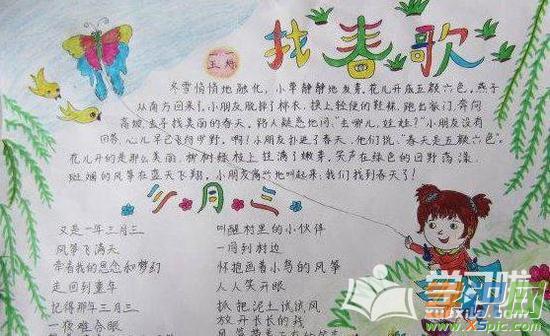 找春歌
冬雪悄悄地融化,小草静静地发芽,花儿开放五颜六色,燕子
从南方回来了。小朋友脱掉了棉衣,换上轻便的鞋袜,跑出家门,奔向
高坡,去寻找美丽的春天,路人疑惑地问:"去哪儿,娃娃?"小朋友没有
回答,心儿早已飞向旷野,啊!小朋友扑进了春天,他们说:"春天是五颜六色"。
花儿开的是那么美丽,树树绿枝上挂满了嫩芽,笑声在绿色的田野荡漾,
斑斓的风筝在蓝天飞翔,小朋友高兴地叫起来:我们找到春天了!
三月三
又是一年三月三
风筝飞满天
牵着我的思念和梦幻
走回到童年
记得那年三月三
一夜难合眼
叫醒村里的小伙伴
一同到村边
怀抱画着小鸟的风筝
人人笑开眼
抓把泥土试试风
放开长长的线
学习啦
x5pic.com